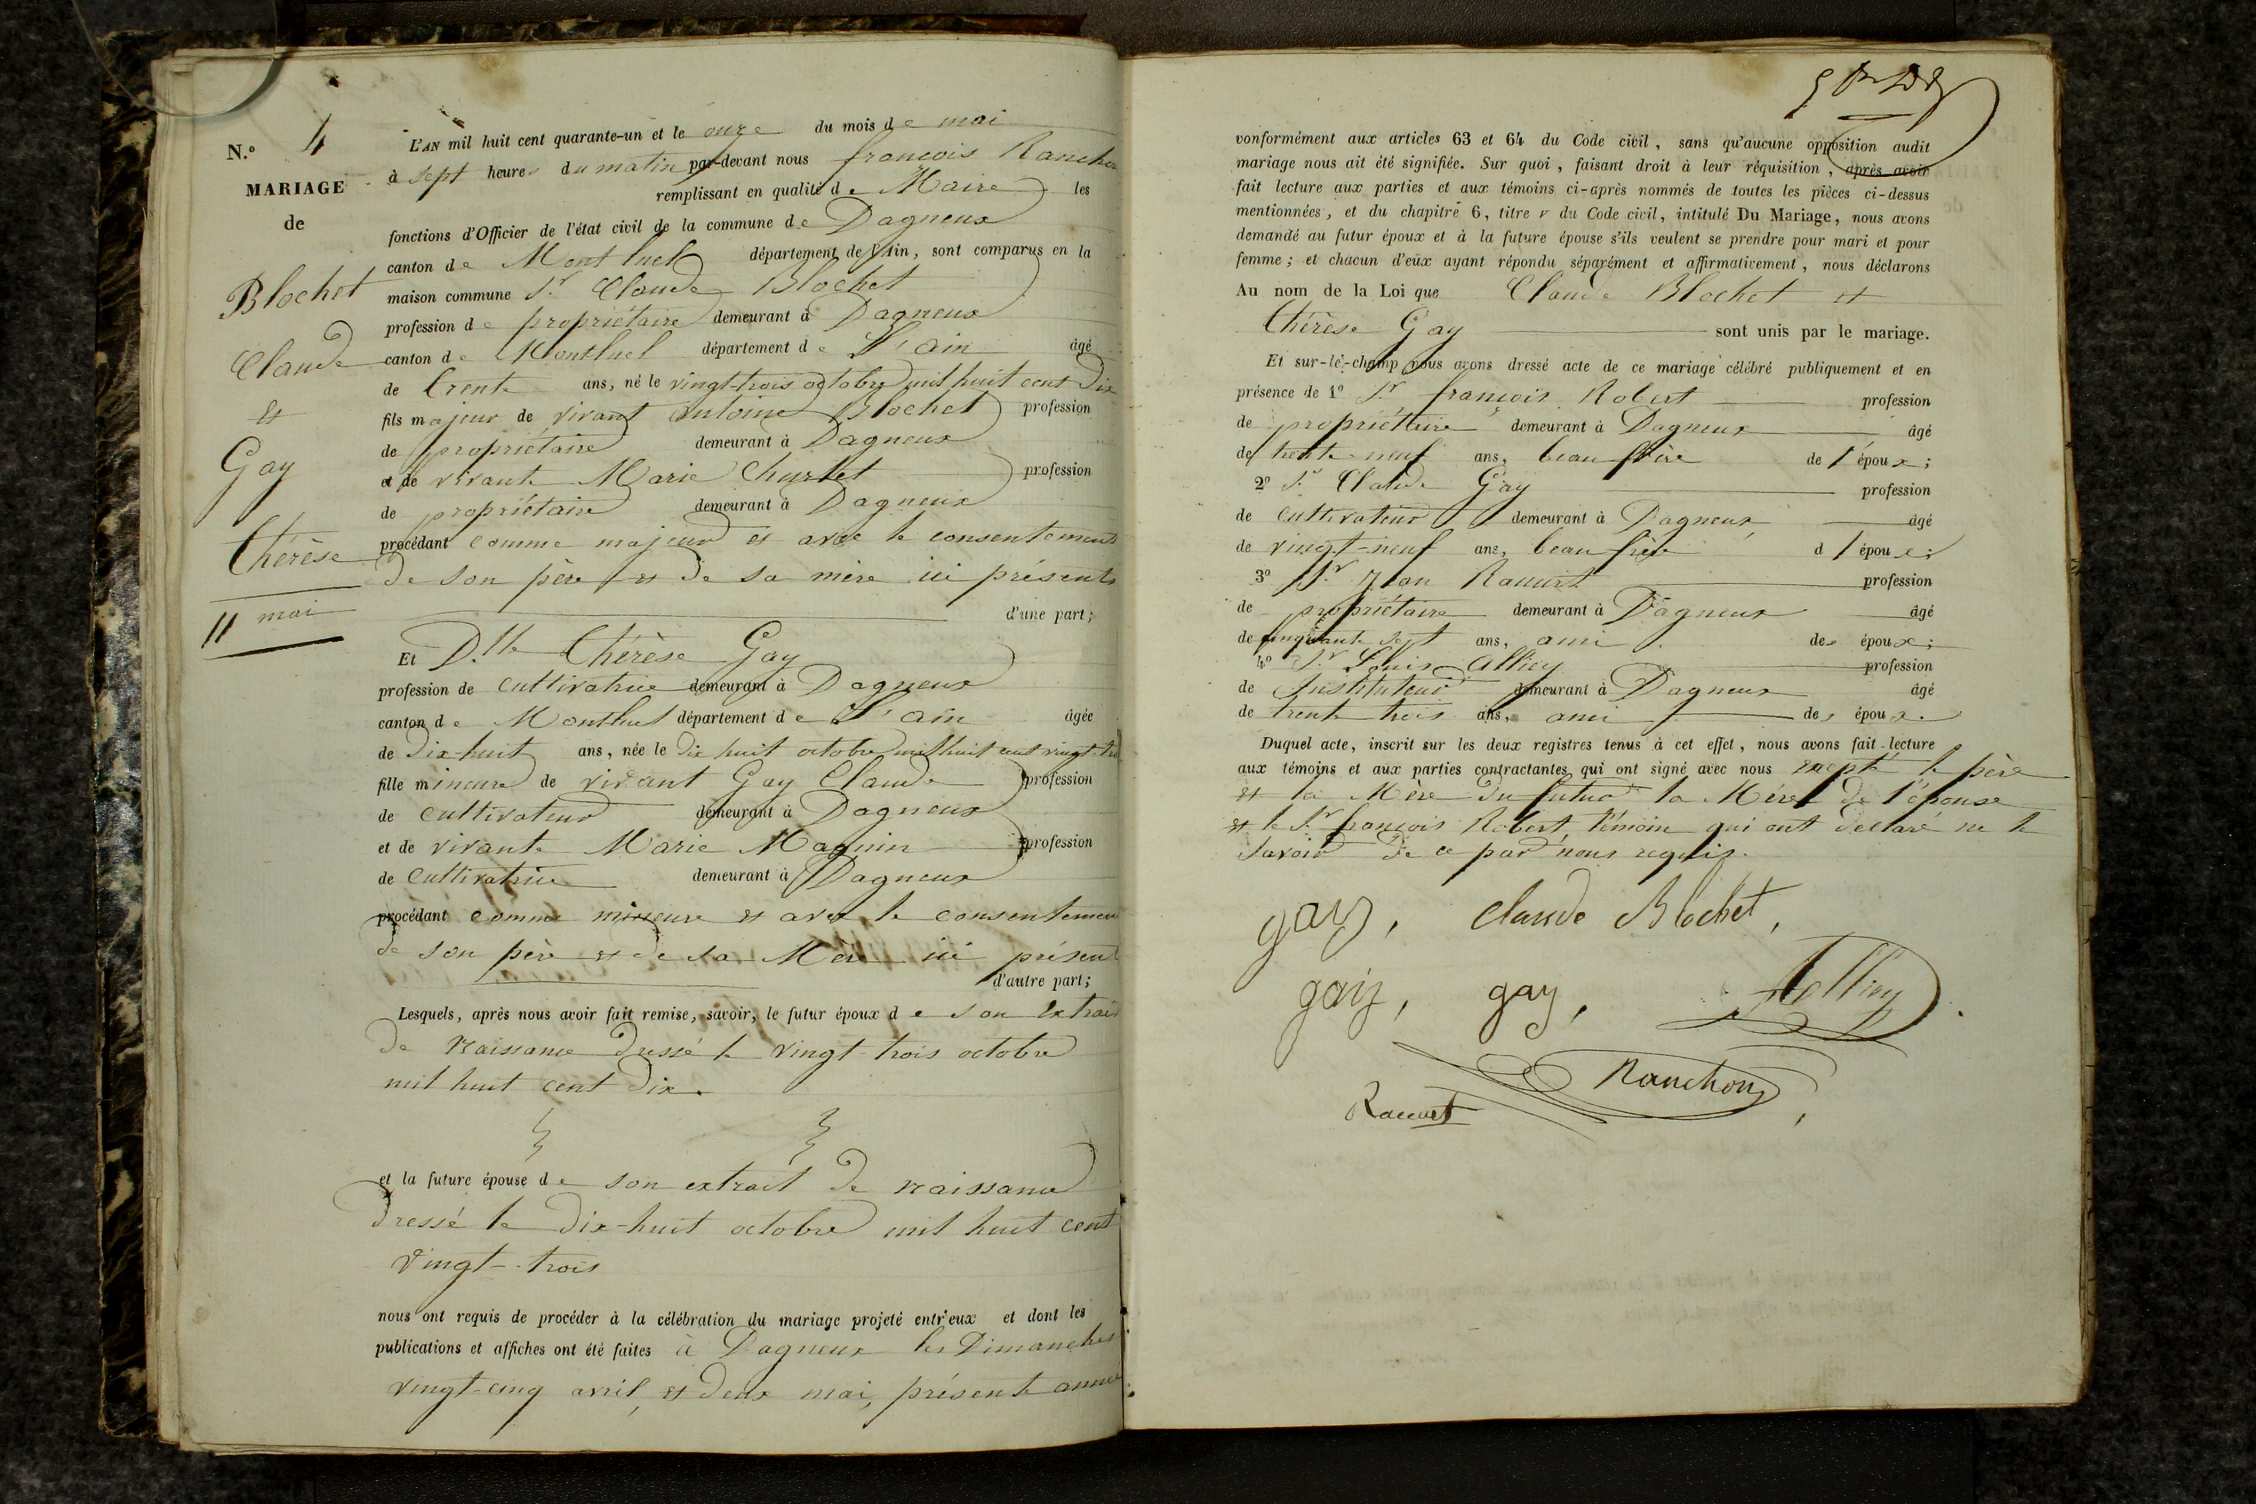 N.° 4
MARIAGE
de
Blochet
Claude
et
Gay
Thérèse
11 mai
L'AN mil huit cent quarante-un et le onze du mois de mai
à sept heures du matin par-devant nous françois Ranchon
remplissant en qualité de Maire les
fonctions d'Officier de l'état civil de la commune de Dagneux
canton de Montluel département de l'Ain, sont comparus en la
maison commune Sr Claude Blochet
profession de propriétaire demeurant à Dagneux
canton de Montluel département de L'ain âgé
de trente ans, né le vingt-trois octobre mil huit cent dix
fils majeur de vivant antoine Blochet profession
de propriétaire demeurant à Dagneux
et de vivante Marie profession
de propriétaire demeurant à Dagneux
procédant comme majeur et avec le consentement
de son père et de sa mère ici présents
d'une part;
Et D.lle Thérèse Gay
profession de cultivatrice demeurant à Dagneux
canton de Montluel département de L'ain âgée
de dix-huit ans, née le dix huit octobre mil huit cent vingt-
fille mineure de vivant Gay Claude profession
de cultivateur demeurant à Dagneux
et de vivante Marie Magnin profession
de cultivatrice demeurant à Dagneux
procédant comme mineure et avec le consentement
de son père et de sa Mère ici présent
d'autre part;
Lesquels, après nous avoir fait remise, savoir, le futur époux de son extrait
de naissance dressé le vingt-trois octobre
mil huit cent dix.
et la future épouse de son extrait de naissance
dressé le dix-huit octobre mil huit cent
vingt-trois
nous ont requis de procéder à la célébration du mariage projeté entr'eux et dont les
publications et affiches ont été faites à Dagneux les Dimanches
vingt-cinq avril, et deux mai, présente année
conformément aux articles 63 et 64 du Code civil, sans qu'aucune opposition audit
mariage nous ait été signifiée. Sur quoi, faisant droit à leur réquisition, après avoir
fait lecture aux parties et aux témoins ci-après nommés de toutes les pièces ci-dessus
mentionnées, et du chapitre 6, titre v du Code civil, intitulé Du Mariage, nous avons
demandé au futur époux et à la future épouse s'ils veulent se prendre pour mari et pour
femme; et chacun d'eux ayant répondu séparément et affirmativement, nous déclarons
Au nom de la Loi que Claude Blochet et
Thérèse Gay sont unis par le mariage.
Et sur-le-champ nous avons dressé acte de ce mariage célébré publiquement et en
présence de 1° Sr françois Robert profession
de propriétaire demeurant à Dagneux âgé
de trente-neuf ans, beau frère de l'époux;
2° Sr Claude Gay profession
de cultivateur demeurant à Dagneux âgé
de vingt-neuf ans, beau frère d l'époux;
3° Sr Jean Racurt profession
de propriétaire demeurant à Dagneux âgé
de cinquante sept ans, ami des époux;
4° Sr Louis Alliey profession
de Instituteur demeurant à Dagneux âgé
de trente trois ans, ami des époux.
Duquel acte, inscrit sur les deux registres tenus à cet effet, nous avons fait lecture
aux témoins et aux parties contractantes qui ont signé avec nous excepté le père
et la Mère du futur la Mère de l'épouse
et le Sr françois Robert, témoin qui ont déclaré ne le
savoir de ce par nous requis.
gay, claude Blochet,
gaiy, gay, Alliey
Ranchon,
Racurt